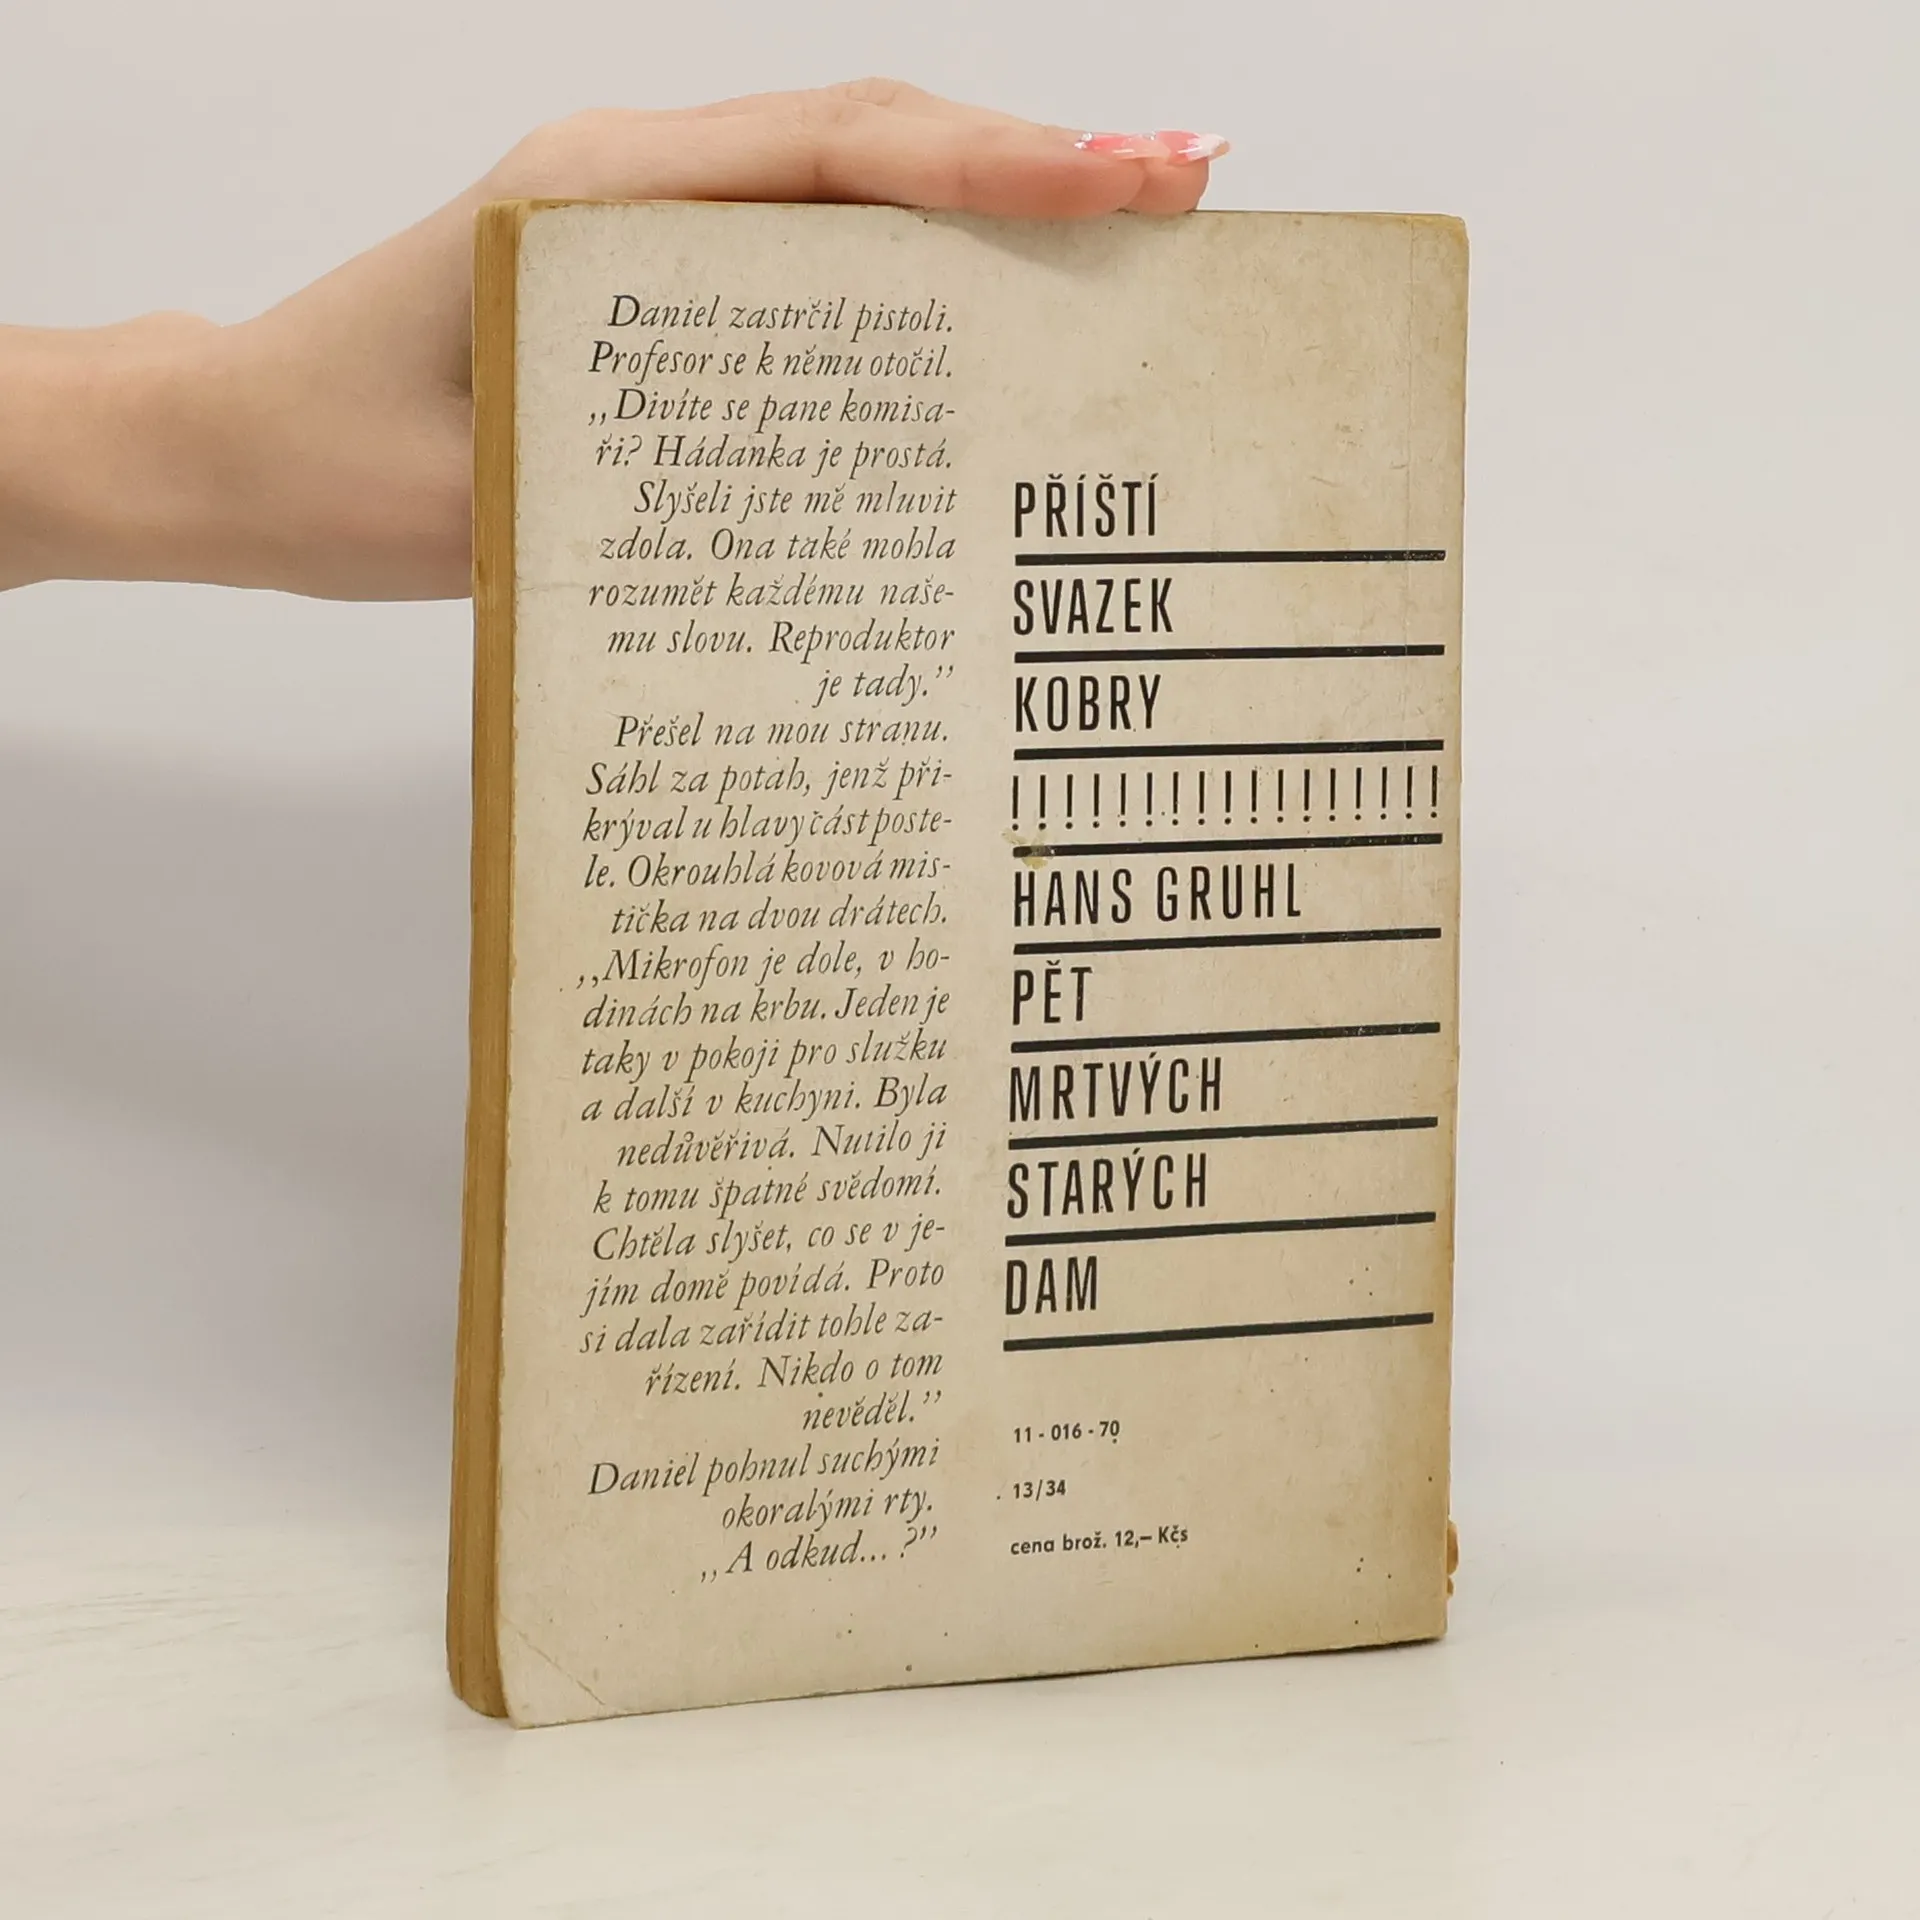 Daniel zastrčil pistoli.
Profesor se k němu otočil.
„Divíte se pane komisa-
ři? Hádanka je prostá.
Slyšeli jste mě mluvit
zdola. Ona také mohla
rozumět každému naše-
mu slovu. Reproduktor
je tady.”
Přešel na mou stranu.
Sáhl za potah, jenž při-
krýval u hlavy část poste-
le. Okrouhlá kovová mis-
tička na dvou drátech.
„Mikrofon je dole, v ho-
dinách na krbu. Jeden je
taky v pokoji pro služku
a další v kuchyni. Byla
nedůvěřivá. Nutilo ji
k tomu špatné svědomí.
Chtěla slyšet, co se v je-
jím domě povídá. Proto
si dala zařídit tohle za-
řízení. Nikdo o tom
nevěděl.”
Daniel pohnul suchými
okoralými rty.
„A odkud... ?”
PŘÍŠTÍ
SVAZEK
KOBRY
!!!!!!!!!!!!!!!!!
HANS GRUHL
PĚT
MRTVÝCH
STARÝCH
DAM
11 - 016 - 70
13/34
cena brož. 12,– Kčs